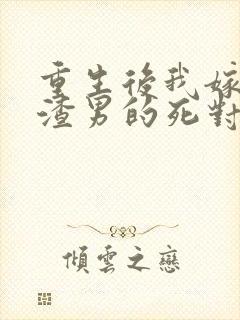 重生後我嫁
渣男的死對
傾雲之戀